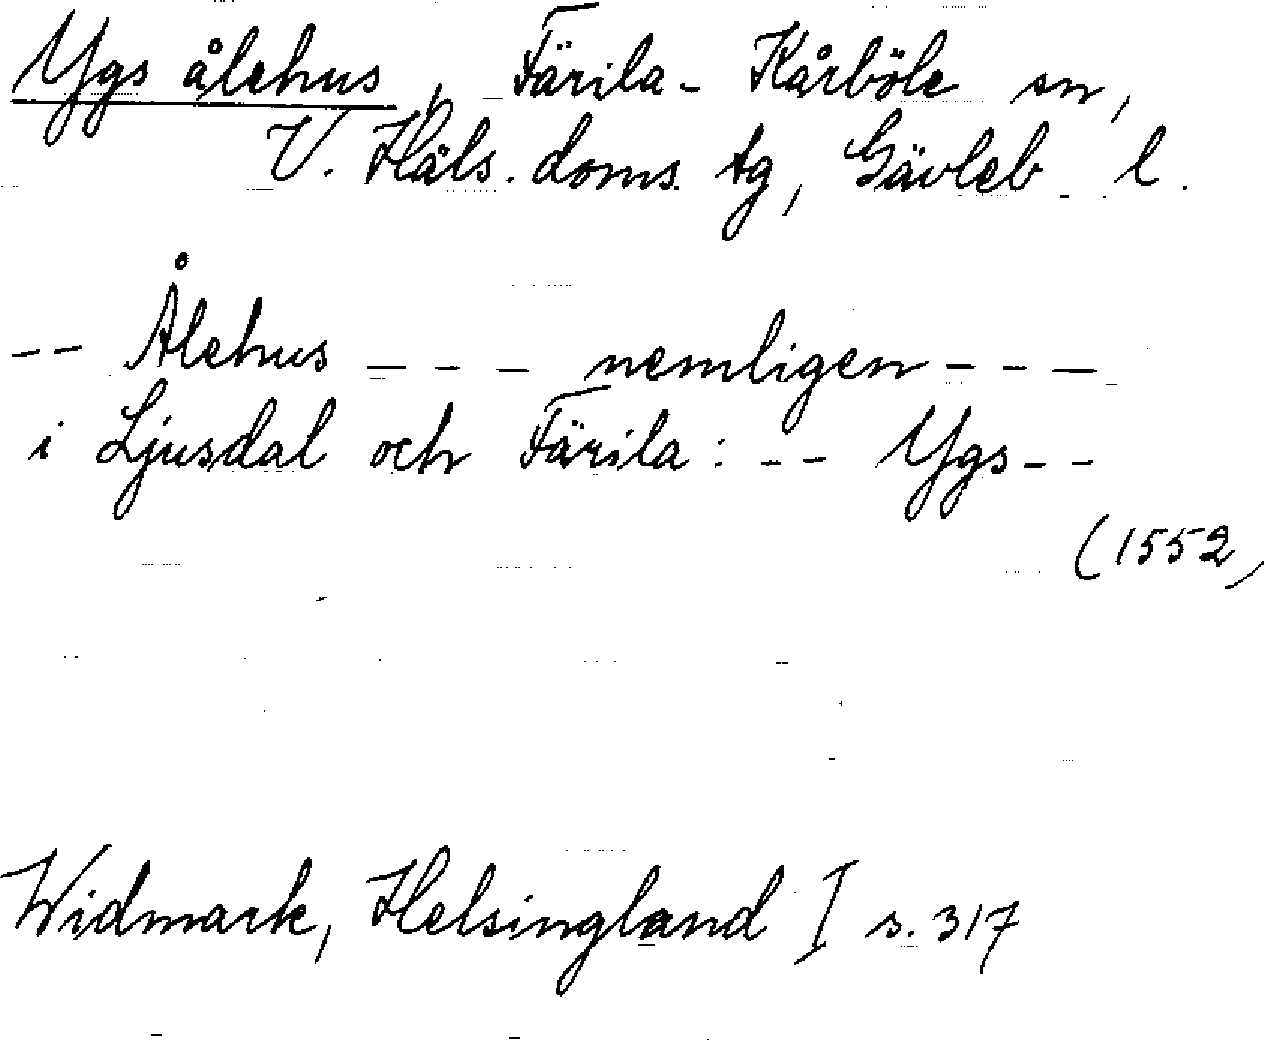 Ygs ålehus, Färila-Kårböle sn,
V. Häls. doms. tg, Gävleb. l.
-- Ålehus --- nemligen ---
i Ljusdal och Färila: -- Ygs --
(1552,
Widmark, Helsingland I s. 317